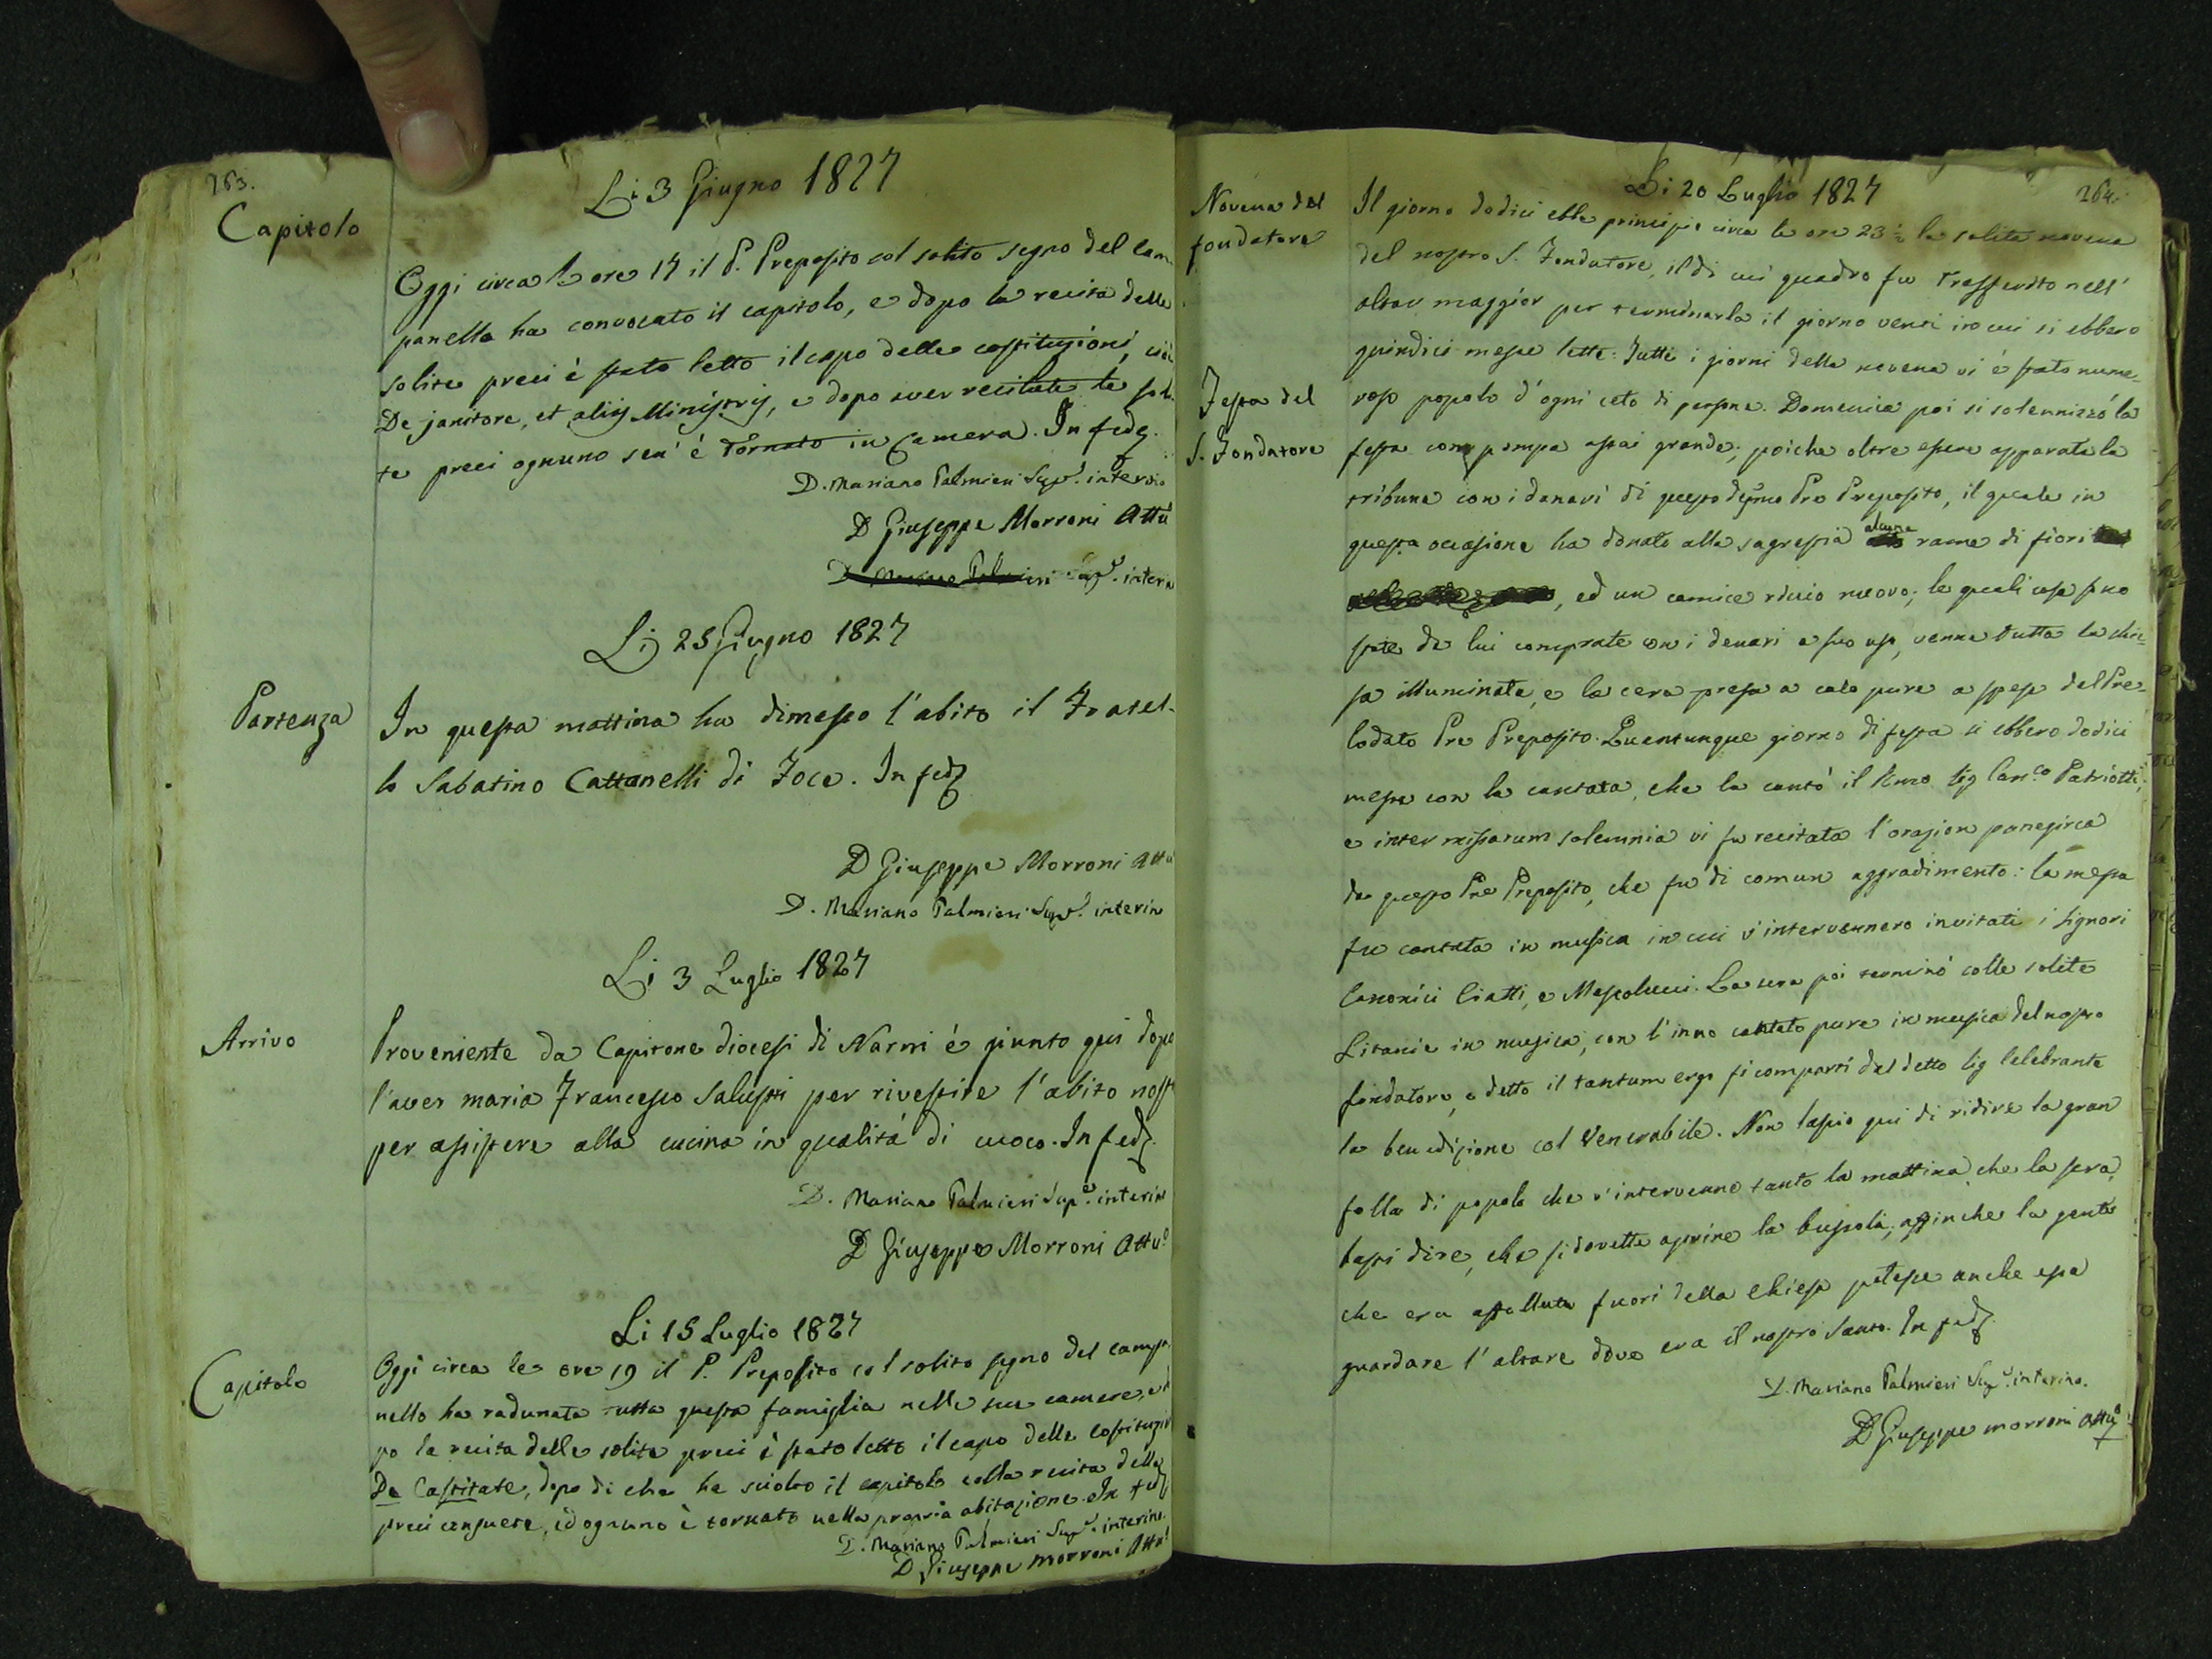 263.
Li 3 Giugno 1827
Capitolo
Oggi circa le ore 17 il P. Preposito col solito segno del cam
panello ha convocato il capitolo, e dopo la recita delle
solite preci è stato letto il capo delle costituzioni, cioè
De janitore, et alijs Ministrijs, e dopo aver recitate le soli
te preci ognuno sen' è tornato in Camera. In fede
D. Mariano Palmieri Sup.e interino
D Giuseppe Morroni Attu
D Mariano Palmieri Sup.e interin
Li 25 Giugno 1827
Partenza
In questa mattina ha dimesso l'abito il Fratel-
lo Sabatino Cattanelli di Foce. In fede
D Giuseppe Morroni Attu
D. Mariano Palmieri Sup.e interin
Li 3 Luglio 1827
Arrivo
Proveniente da Capitone diocesi di Narni é giunto qui dopo
l'aver maria Francesco Salustri per rivestire l'abito nost
per assistere alla cucina in qualitá di cuoco. In fede.
D. Mariano Palmieri Sup.e interin
D Giuseppe Morroni Attu.e
Li 15 Luglio 1827
Capitolo
Oggi circa le ore 19 il P. Preposito col solito segno del campa
nello ha radunata tutta questa famiglia nelle sue camere, e d
po la recita delle solite preci è stato letto il capo delle costituzio
De Castitate, dopo di che ha sciolto il capitolo colla recita delle
preci consuete, ed ognuno è tornato nella propria abitazione. In fede
D. Mariano Palmieri Sup.e interino.
D Giuseppe Morroni Attu.e
264.
Li 20 Luglio 1827
Novena del
fondatore
Il giorno dodici ebbe principio circa le ore 23 ½ la solita novena
del nostro S. Fondatore, il di cui quadro fu trasferito nell'
altar maggior per terminarla il giorno venti in cui si ebbero
quindici messe lette. Tutti i giorni della novena vi é stato nume-
Festa del
S. Fondatore
roso popolo d'ogni ceto di persone. Domenica poi si solennizzó la
festa con pompa assai grande; poiche oltre essere apparata la
tribuna con i danari di questo Pre Preposito, il quale in
questa occasione ha donato alla sagrestia alcune rame di fiori
, ed un camice riccio nuovo; le quali cose sono
state da lui comprate con i denari a suo uso, venne tutta la chie-
sa illuminata, e la cera presa a calo pure a spese del Pre-
lodato Pre Preposito. Quantunque giorno di festa si ebbero dodici
messe con la cantata, che la cantó il Rmo Sig Can.co Patriotti,
e inter missarum solemnia vi fu recitata l'orazion panegirica
da questo Pre Preposito, che fu di comun aggradimento: la messa
fu cantata in musica in cui v'intervennero invitati i Signori
Canonici Ciatti, e Mescolucci. La sera poi terminó colle solite
Litanie in musica, con l'inno cantato pure in musica del nostro
fondatore, e detto il tantum ergo si compartí dal detto Sig Celebrante
la benedizione col Venerabile. Non lascio qui di ridire la gran
folla di popolo che v'intervenne tanto la mattina, che la sera,
basti dire, che si dovette aprire la bussola, affinche la gente
che era affollata fuori della Chiesa potesse anche essa
guardare l'altare dove era il nostro Santo. In fede.
D. Mariano Palmieri Sup.e interino.
D Giuseppe Morroni Attu.e